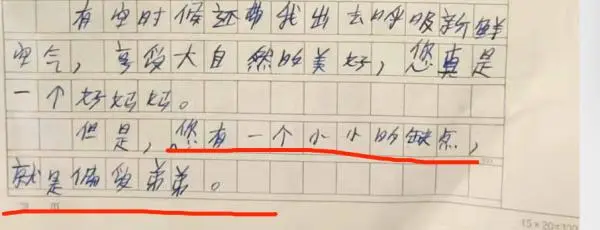 有空时候还带我出去呼吸新鲜
空气，享受大自然的美好，您真是
一个好妈妈。
但是，您有一个小小的缺点，
就是偏爱弟弟。
15×20=300